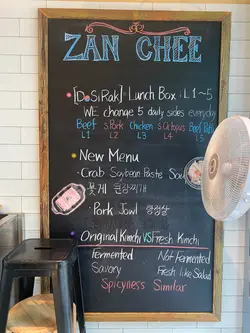 ZAN CHEE
[DoSiRak] - Lunch Box : L1~5
WE change 5 daily sides everyday
Beef S.Pork Chicken S.Octopus Beef Patty
L1 L2 L3 L4 L5
New Menu
- Crab Soybean Paste Soup
꽃게 된장찌개
- Pork Jowl 항정살
Original Kimchi VS Fresh Kimchi
Fermented Not Fermented
Savory Fresh like Salad
Spicyness Similar